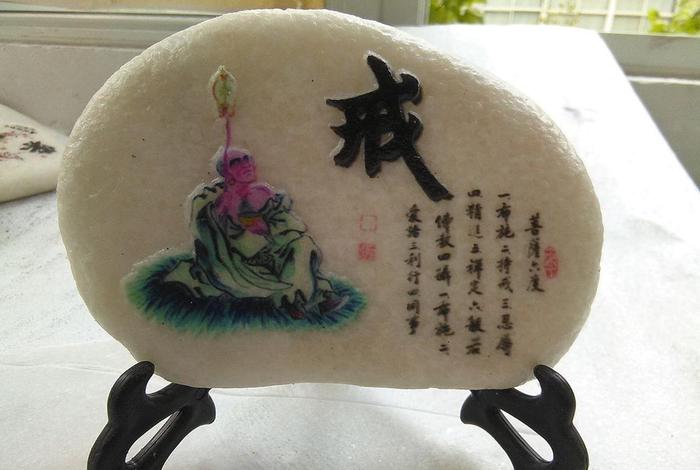 戒
菩薩六度
一布施二持戒三忍辱
四精進五禪定六般若
佛教四攝一布施二
愛語三利行四同事